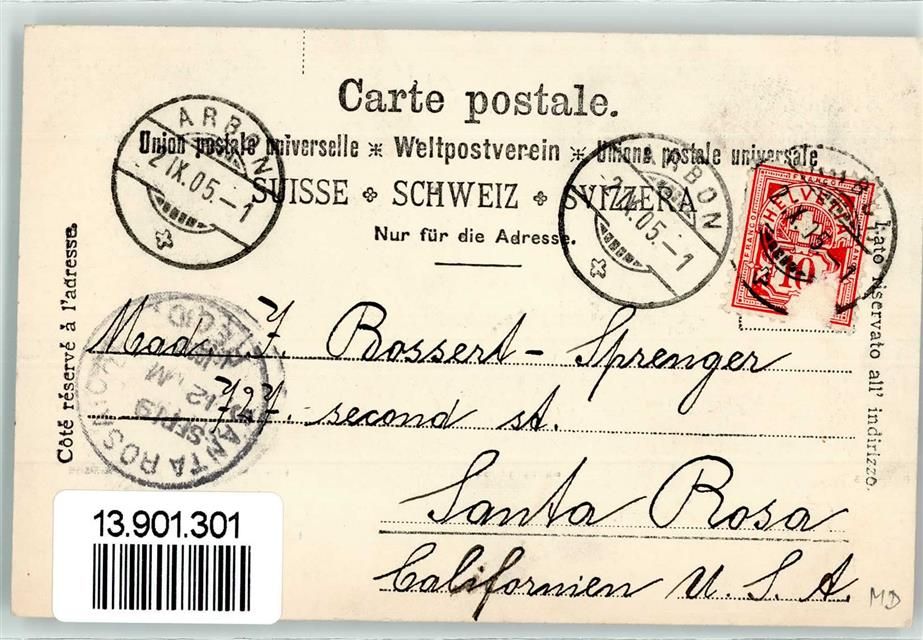 Carte postale.
Union postale universelle ⁎ Weltpostverein ⁎ Unione postale universale
SUISSE ⁎ SCHWEIZ ⁎ SVIZZERA
Nur für die Adresse.
Côté réservé à l'adresse.
Lato riservato all' indirizzo.
ARBON
2.IX.05.-1
ARBON
2.IX.05.-1
FRANCO
HELVETIA
10
SANTA ROSA
SEP 19
12 M
REC'D
Mad. J. Bossert-Sprenger
727. second st.
Santa Rosa
Californien U. S. A.
13.901.301
MD